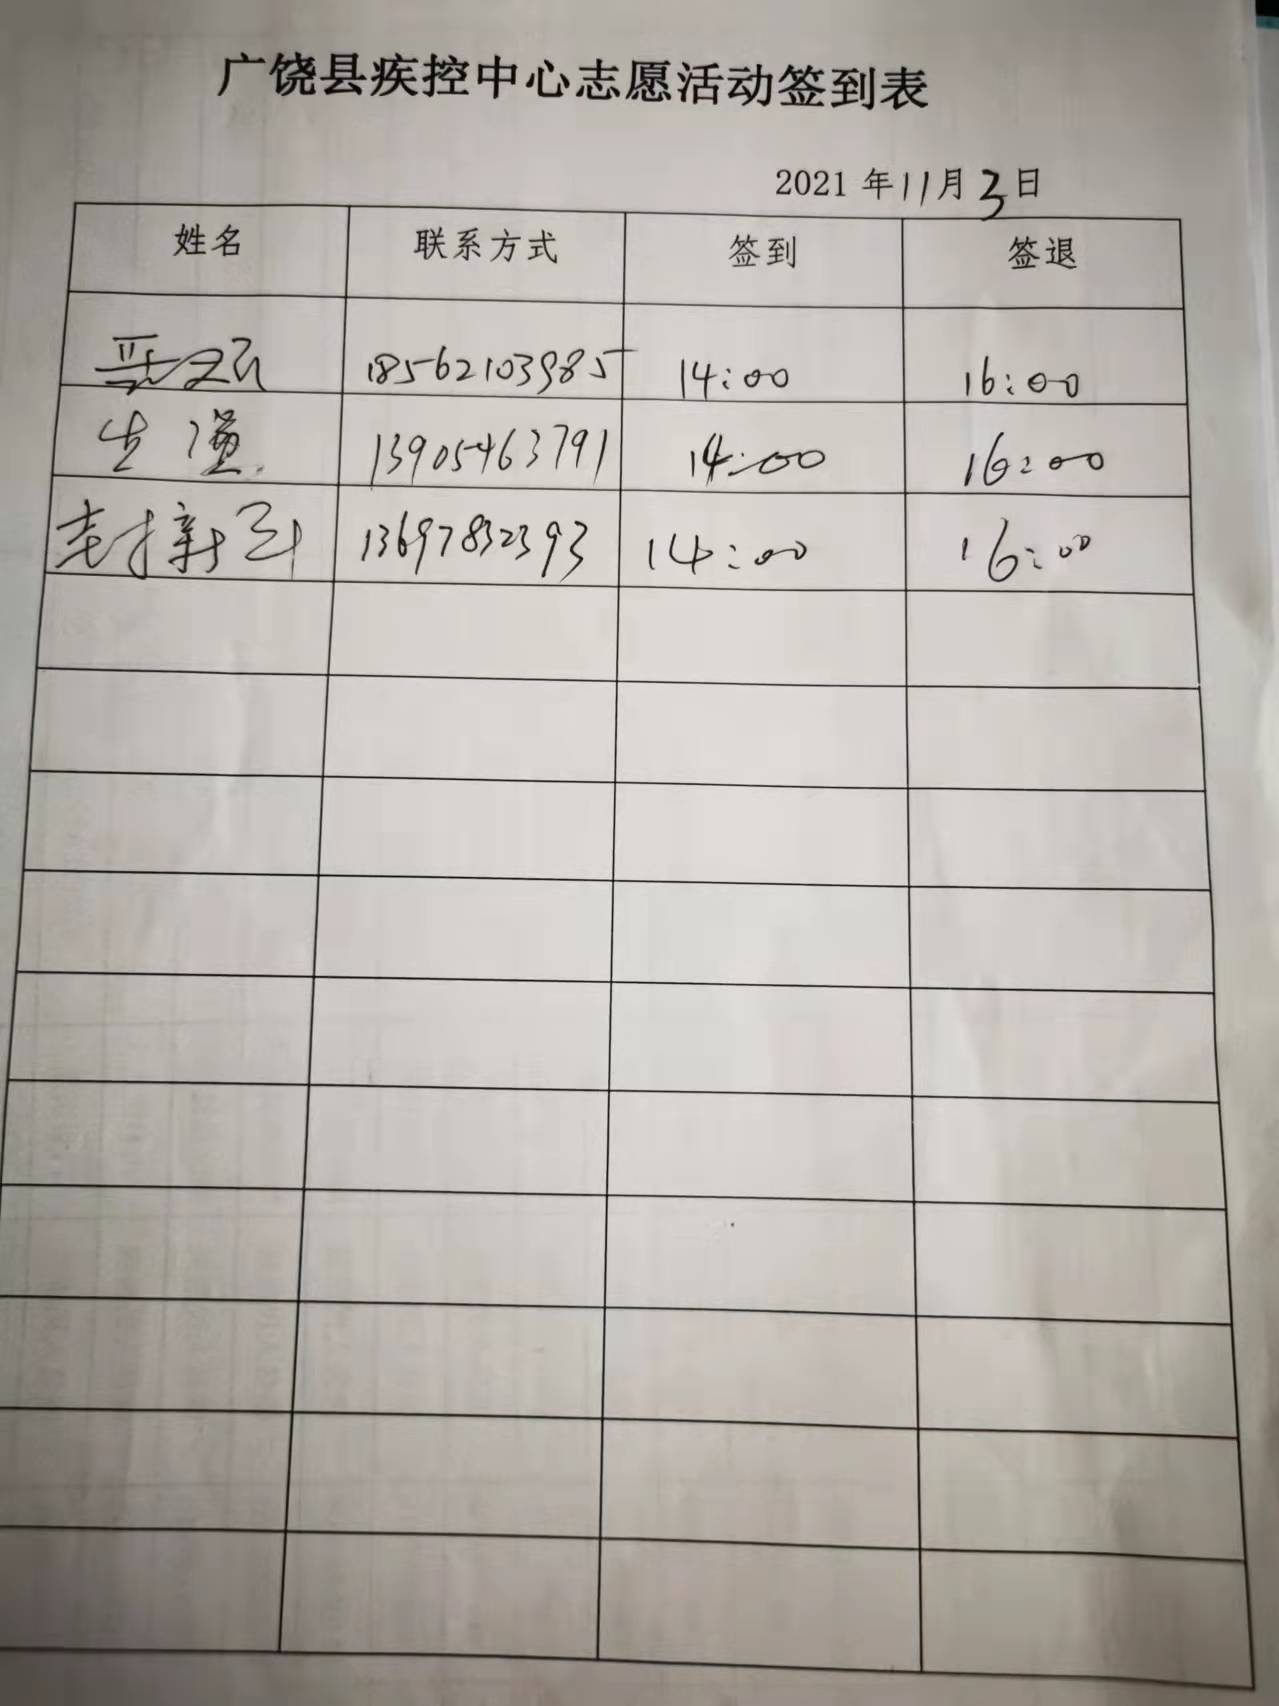 广饶县疾控中心志愿活动签到表
2021年11月3日
姓名 联系方式 签到 签退
18562103985 14:00 16:00
生 13905463791 14:00 16:00
新 13697832393 14:00 16:00